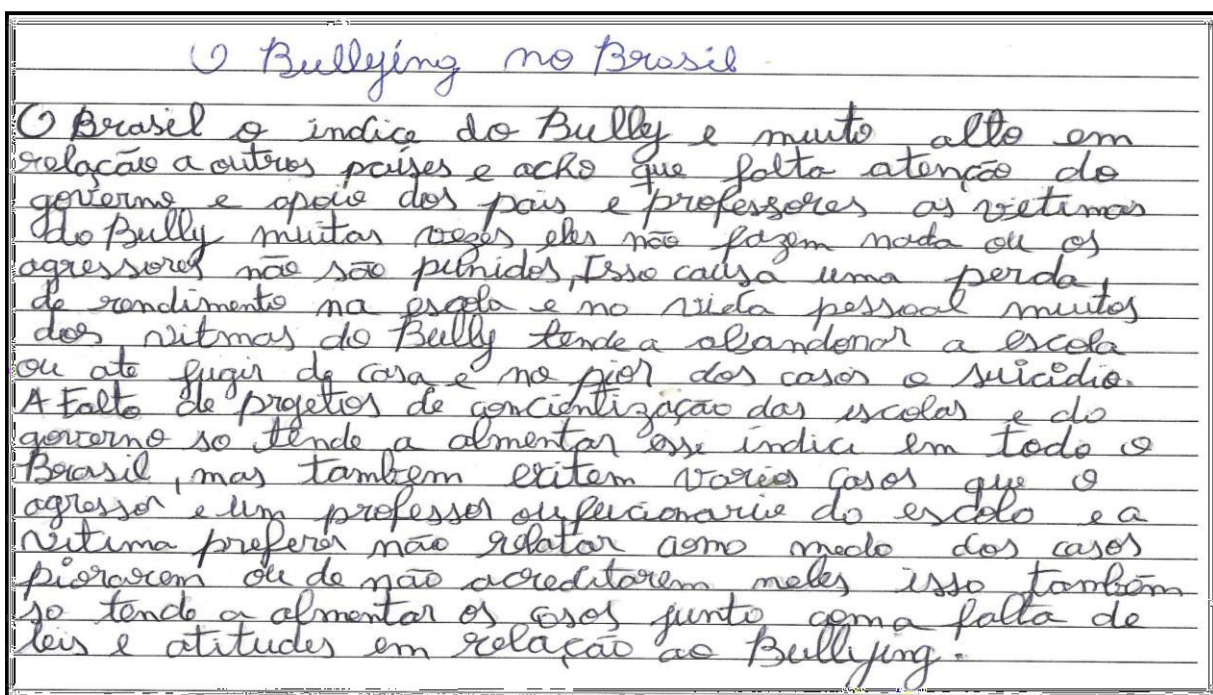 O Bullying no Brasil
O Brasil o indice do Bully e muito alto em
relação a outros países e acho que falta atenção do
governo e apoio dos pais e professores as vietimas
do Bully muitas vezes eles não fazem nada ou os
agressores não são punidos, Isso causa uma perda
de rendimento na escola e no vida pessoal muitos
dos vitmas do Bully tende a abandonar a escola
ou ate fugir de casa e no pior dos casos o suicidio.
A Falta de projetios de concientização das escolas e do
governo so tende a almentar esse indice em todo o
Brasil, mas tambem exitem varios casos que o
agressor e um professor ou fucionario do escola e a
vitima preferir não relatar como medo dos casos
piorarem ou de não acreditarem neles isso também
so tende a almentar os casos junto com a falta de
leis e atitudes em relação ao Bullying.